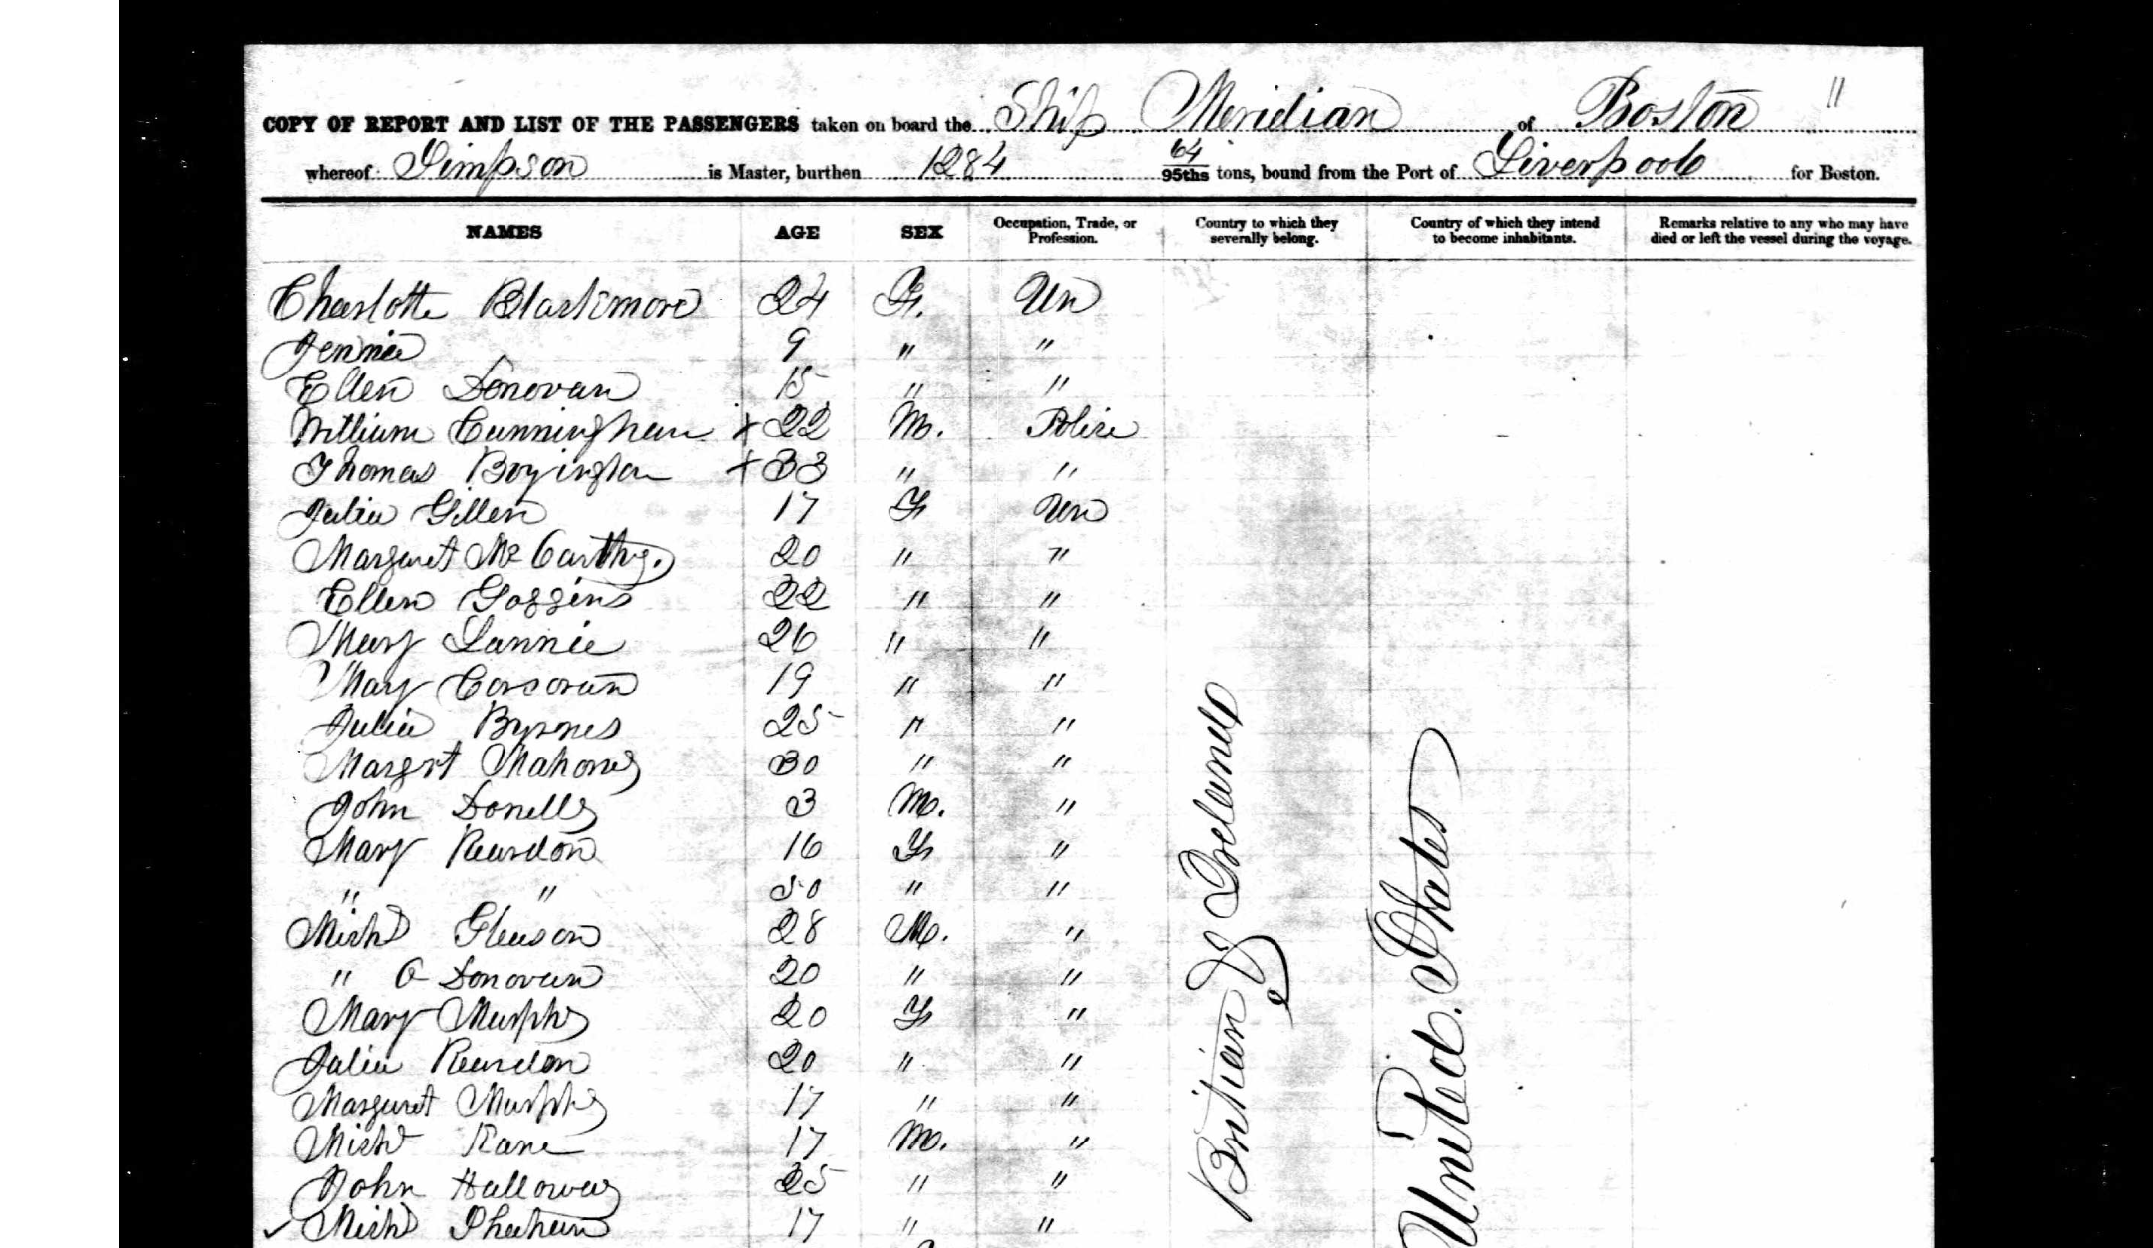 COPY OF REPORT AND LIST OF THE PASSENGERS taken on board the Ship Meridian of Boston "
whereof Simpson is Master, burthen 1284 64/95ths tons, bound from the Port of Liverpool for Boston.
NAMES AGE SEX Occupation, Trade, or Profession. Country to which they severally belong. Country of which they intend to become inhabitants. Remarks relative to any who may have died or left the vessel during the voyage.
Charlotte Blackimore 24 F. Un
Jennie 9 " "
Ellen Donovan 15 " "
William Cunningham x 22 M. Police
Thomas Boyington + 33 " "
Julia Gillen 17 F Un
Margaret Mc Carthy. 20 " "
Ellen Goggins 22 " "
Mary Lannie 26 " "
Mary Corcoran 19 " "
Julia Byrnes 25 " "
Margrt Mahoney 30 " "
John Donelly 3 M. "
Mary Reardon 16 F "
" " 50 " "
Michl Gleason 28 M. "
" O Donovan 20 " "
Mary Murphy 20 F "
Julia Reardon 20 " "
Margaret Murphy 17 " "
Michl Kane 17 M. "
John Halloway 25 " "
Michl Sheehan 17 " "
Britian & Ireland
United States